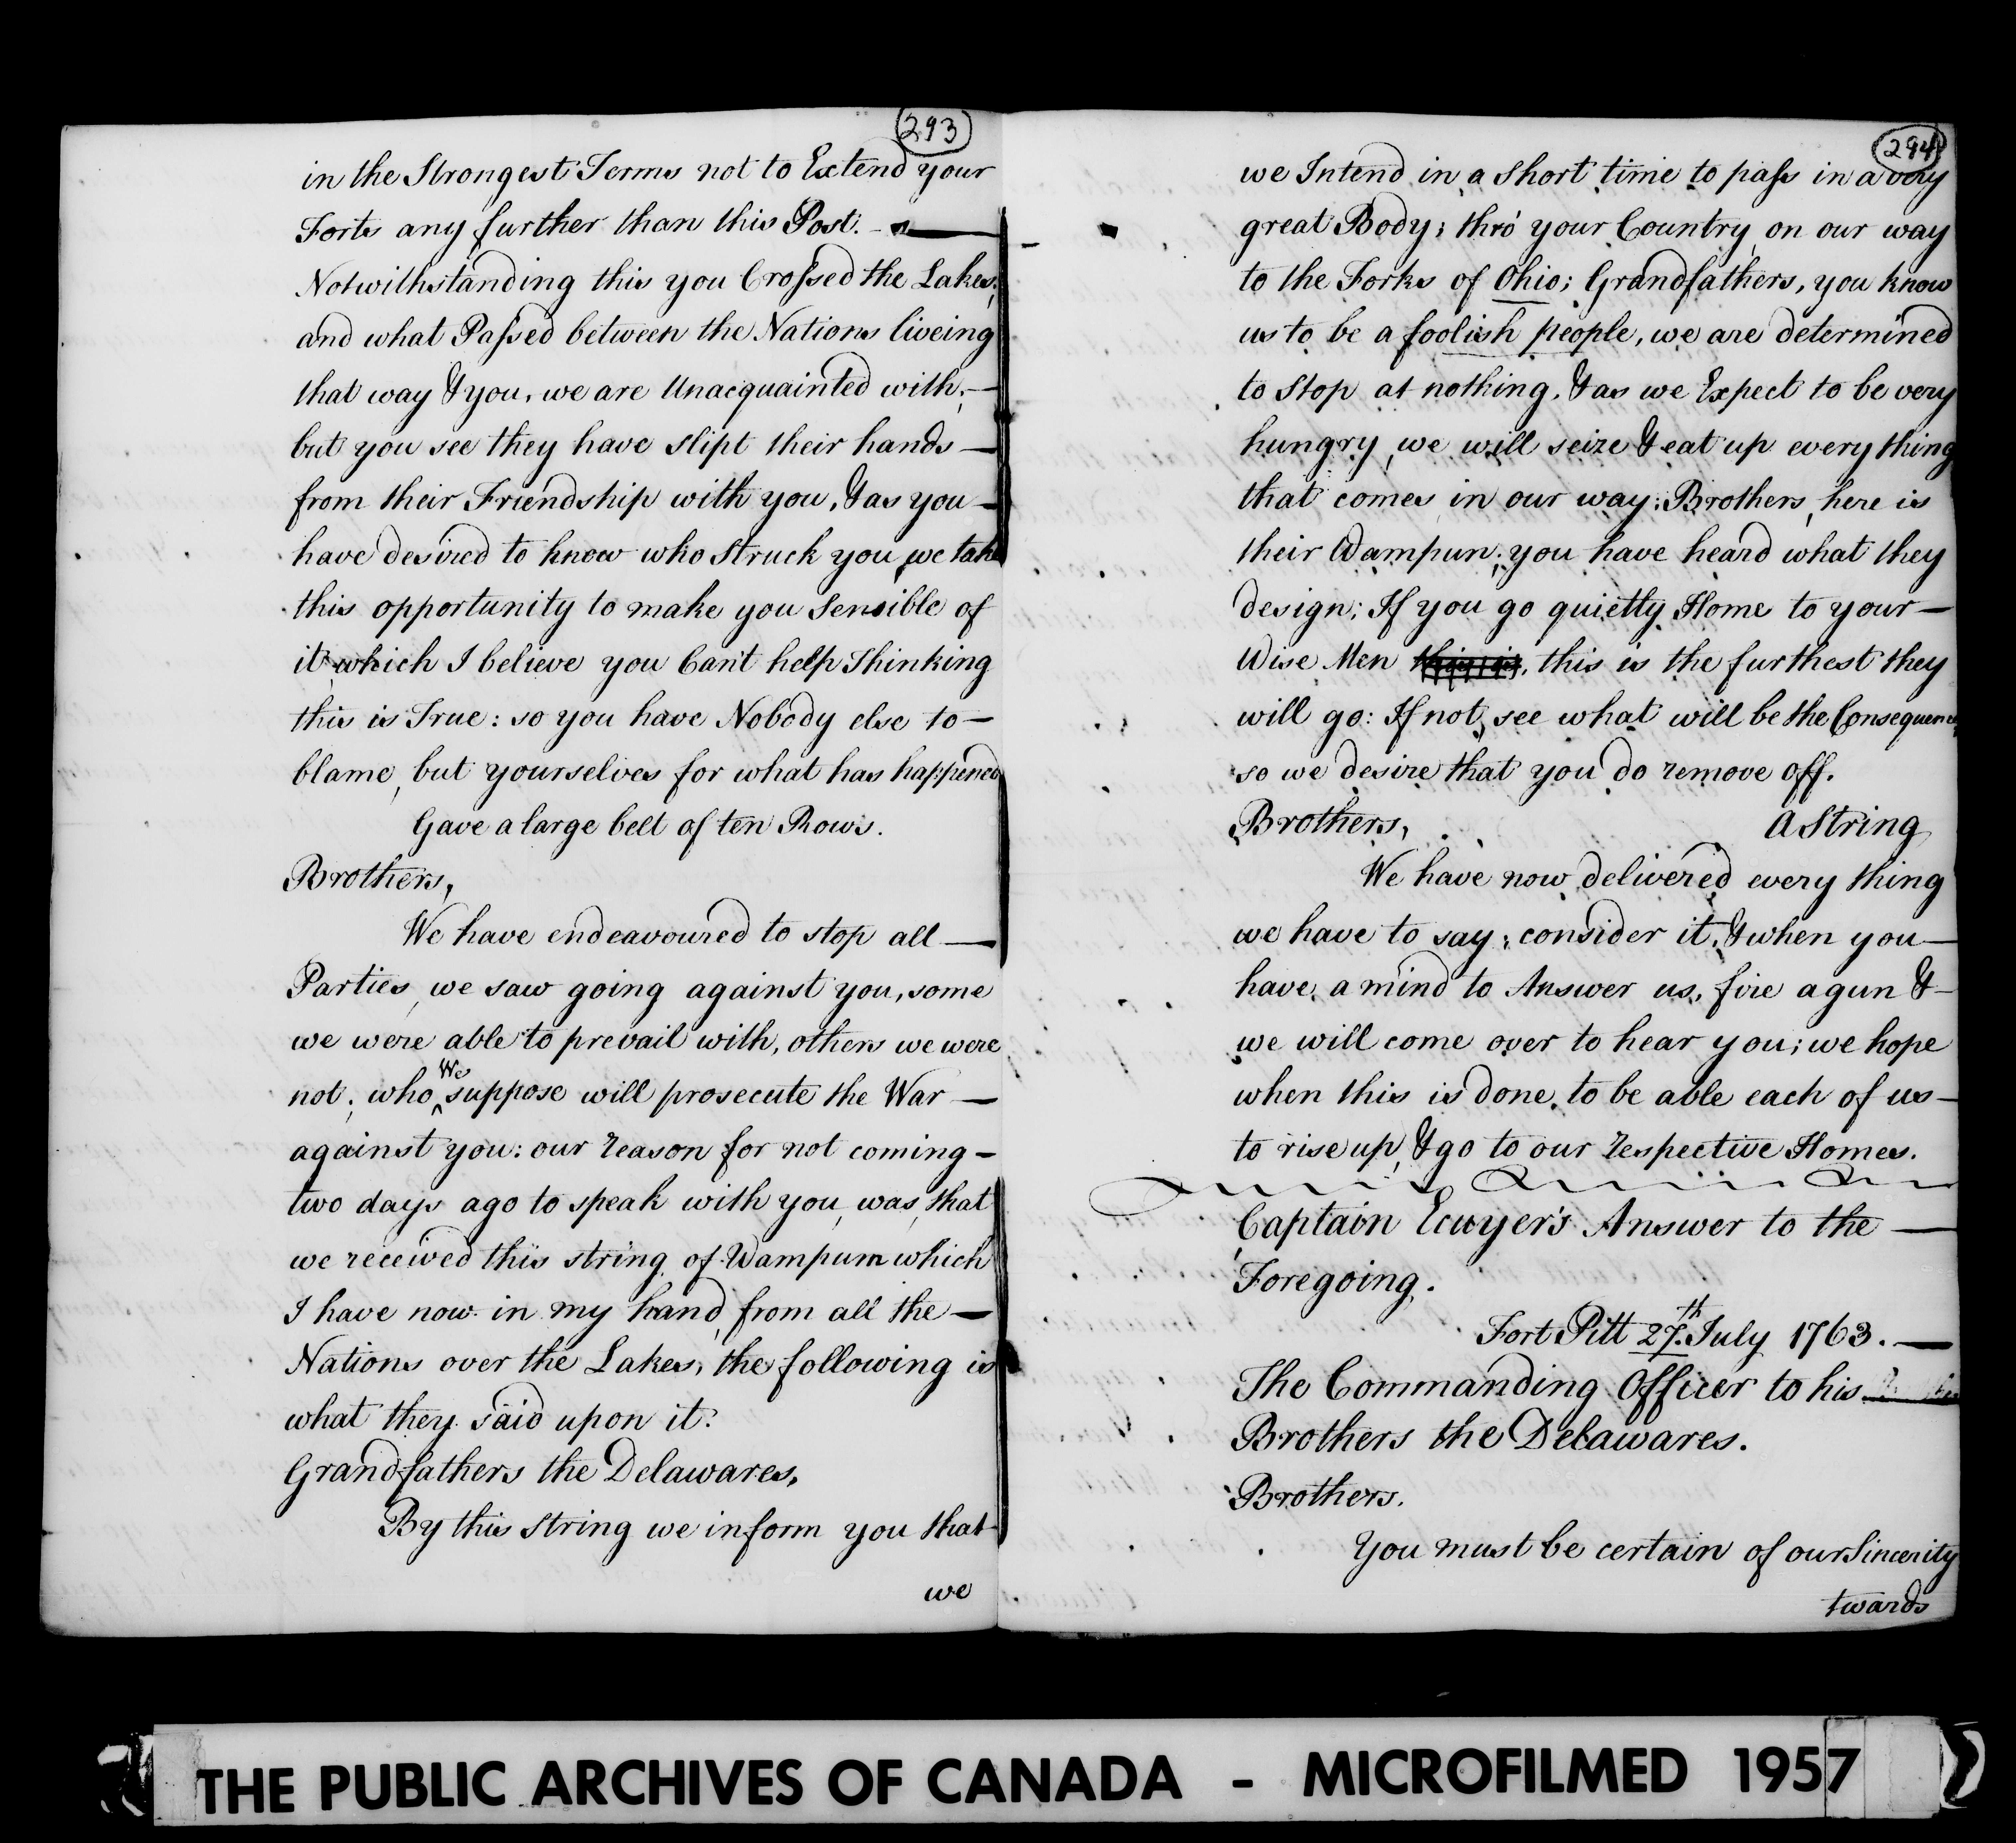 293
in the Strongest Terms not to Extend your
Forts any further than this Post. —
Notwithstanding this you Crossed the Lakes;
and what Passed between the Nations liveing
that way & you, we are Unacquainted with; —
but you see they have slipt their hands —
from their Friendship with you, & as you —
have desired to know who Struck you, we take
this opportunity to make you Sensible of
it which I believe you Can't help Thinking
this is True: so you have Nobody else to —
blame, but yourselves for what has happened
Gave a large belt of ten Rows.
Brothers,
We have endeavoured to stop all —
Parties, we saw going against you, some
we were able to prevail with, others we were
not; who We suppose will prosecute the War —
against you: our reason for not coming —
two days ago to speak with you, was, that
we received this string of Wampum which
I have now in my hand, from all the —
Nations over the Lakes, the following is
what they said upon it.
Grandfathers the Delawares,
By this String we inform you that
we
294
we Intend in a Short time to pass in a very
great Body; thro' your Country on our way
to the Forks of Ohio; Grandfathers, you know
us to be a foolish people, we are determined
to Stop at nothing, & as we Expect to be very
hungry, we will seize & eat up every thing
that comes in our way; Brothers, here is
their Wampun; you have heard what they
design; If you go quietly Home to your —
Wise Men this is, this is the furthest they
will go: If not, see what will be the Consequence,
so we desire that you do remove off.
Brothers, A String
We have now delivered every thing
we have to say; consider it, & when you —
have a mind to Answer us, fire a gun & —
we will come over to hear you; we hope
when this is done, to be able each of us —
to rise up, & go to our respective Homes.
Captain Ecuyer's Answer to the —
Foregoing.
Fort Pitt 27th. July 1763. —
The Commanding Officer to his
Brothers the Delawares.
Brothers.
You must be certain of our Sincerity
twards
THE PUBLIC ARCHIVES OF CANADA - MICROFILMED 1957